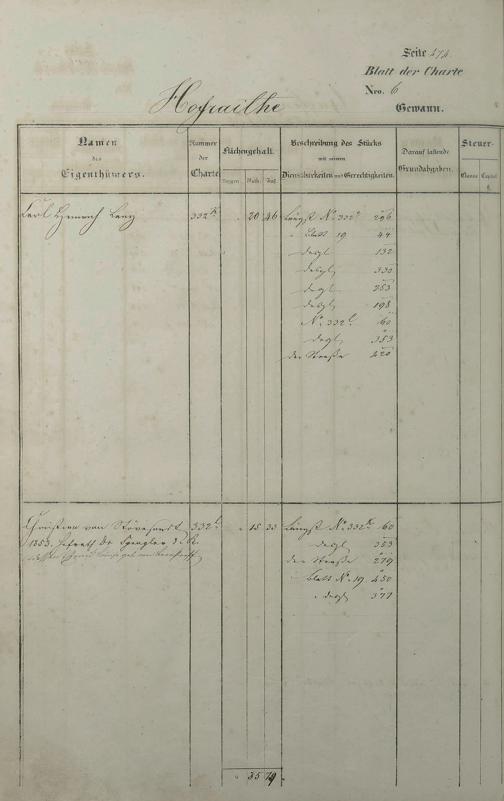 Seite 474.
Blatt der Charte
Nro. 6
Gewann.
Hofraithe
Namen des Eigenthümers.
Nummer der Charte
Flächengehalt.
Morgen. Ruth. Fuß.
Beschreibung des Stücks mit seinen Dienstbarkeiten und Gerechtigkeiten.
Darauf lastende Grundabgaben.
Steuer-
Classe Capital
fl.
Carl Heinrich 332 20 46 Längst No. 332 296
" Blatt 19 44
desgl. 132
desgl. 330
desgl. 353
desgl. 198
No. 332 60
desgl. 353
der Straße 420
Christian von 332 " 15 33 Längst No. 332 60
1853. Hofrath Dr. Spengler desgl. 353
der Straße 279
Blatt No. 19 450
" desgl. 377
" 35 79